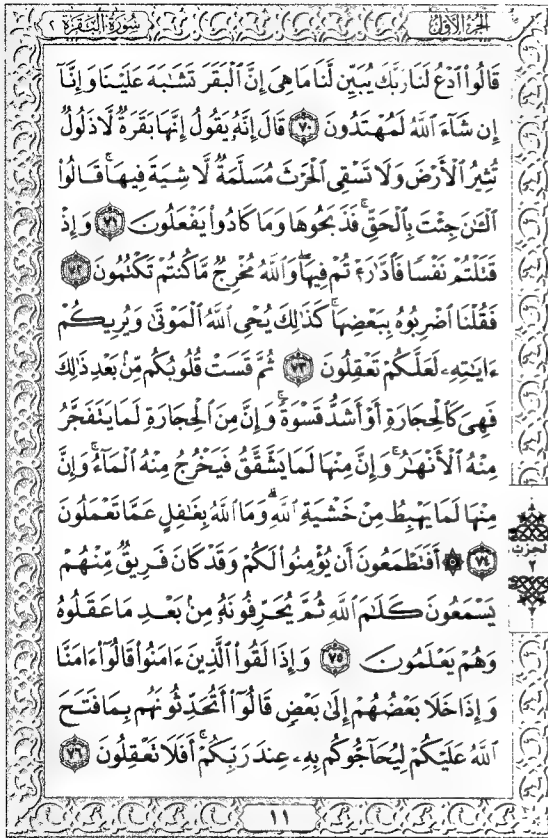 الجزء الأول
سورة البقرة ٢
قَالُوا۟ ٱدْعُ لَنَا رَبَّكَ يُبَيِّن لَّنَا مَا هِىَ إِنَّ ٱلْبَقَرَ تَشَٰبَهَ عَلَيْنَا وَإِنَّآ
إِن شَآءَ ٱللَّهُ لَمُهْتَدُونَ ٧٠ قَالَ إِنَّهُۥ يَقُولُ إِنَّهَا بَقَرَةٌ لَّا ذَلُولٌ
تُثِيرُ ٱلْأَرْضَ وَلَا تَسْقِى ٱلْحَرْثَ مُسَلَّمَةٌ لَّا شِيَةَ فِيهَا ۚ قَالُوا۟
ٱلْـَٰٔنَ جِئْتَ بِٱلْحَقِّ ۚ فَذَبَحُوهَا وَمَا كَادُوا۟ يَفْعَلُونَ ٧١ وَإِذْ
قَتَلْتُمْ نَفْسًا فَٱدَّٰرَْٰٔتُمْ فِيهَا ۖ وَٱللَّهُ مُخْرِجٌ مَّا كُنتُمْ تَكْتُمُونَ ٧٢
فَقُلْنَا ٱضْرِبُوهُ بِبَعْضِهَا ۚ كَذَٰلِكَ يُحْىِ ٱللَّهُ ٱلْمَوْتَىٰ وَيُرِيكُمْ
ءَايَٰتِهِۦ لَعَلَّكُمْ تَعْقِلُونَ ٧٣ ثُمَّ قَسَتْ قُلُوبُكُم مِّنۢ بَعْدِ ذَٰلِكَ
فَهِىَ كَٱلْحِجَارَةِ أَوْ أَشَدُّ قَسْوَةً ۚ وَإِنَّ مِنَ ٱلْحِجَارَةِ لَمَا يَتَفَجَّرُ
مِنْهُ ٱلْأَنْهَٰرُ ۚ وَإِنَّ مِنْهَا لَمَا يَشَّقَّقُ فَيَخْرُجُ مِنْهُ ٱلْمَآءُ ۚ وَإِنَّ
مِنْهَا لَمَا يَهْبِطُ مِنْ خَشْيَةِ ٱللَّهِ ۗ وَمَا ٱللَّهُ بِغَٰفِلٍ عَمَّا تَعْمَلُونَ
٧٤ ۞ أَفَتَطْمَعُونَ أَن يُؤْمِنُوا۟ لَكُمْ وَقَدْ كَانَ فَرِيقٌ مِّنْهُمْ
يَسْمَعُونَ كَلَٰمَ ٱللَّهِ ثُمَّ يُحَرِّفُونَهُۥ مِنۢ بَعْدِ مَا عَقَلُوهُ
وَهُمْ يَعْلَمُونَ ٧٥ وَإِذَا لَقُوا۟ ٱلَّذِينَ ءَامَنُوا۟ قَالُوٓا۟ ءَامَنَّا
وَإِذَا خَلَا بَعْضُهُمْ إِلَىٰ بَعْضٍ قَالُوٓا۟ أَتُحَدِّثُونَهُم بِمَا فَتَحَ
ٱللَّهُ عَلَيْكُمْ لِيُحَآجُّوكُم بِهِۦ عِندَ رَبِّكُمْ ۚ أَفَلَا تَعْقِلُونَ ٧٦
الحزب
٢
١١